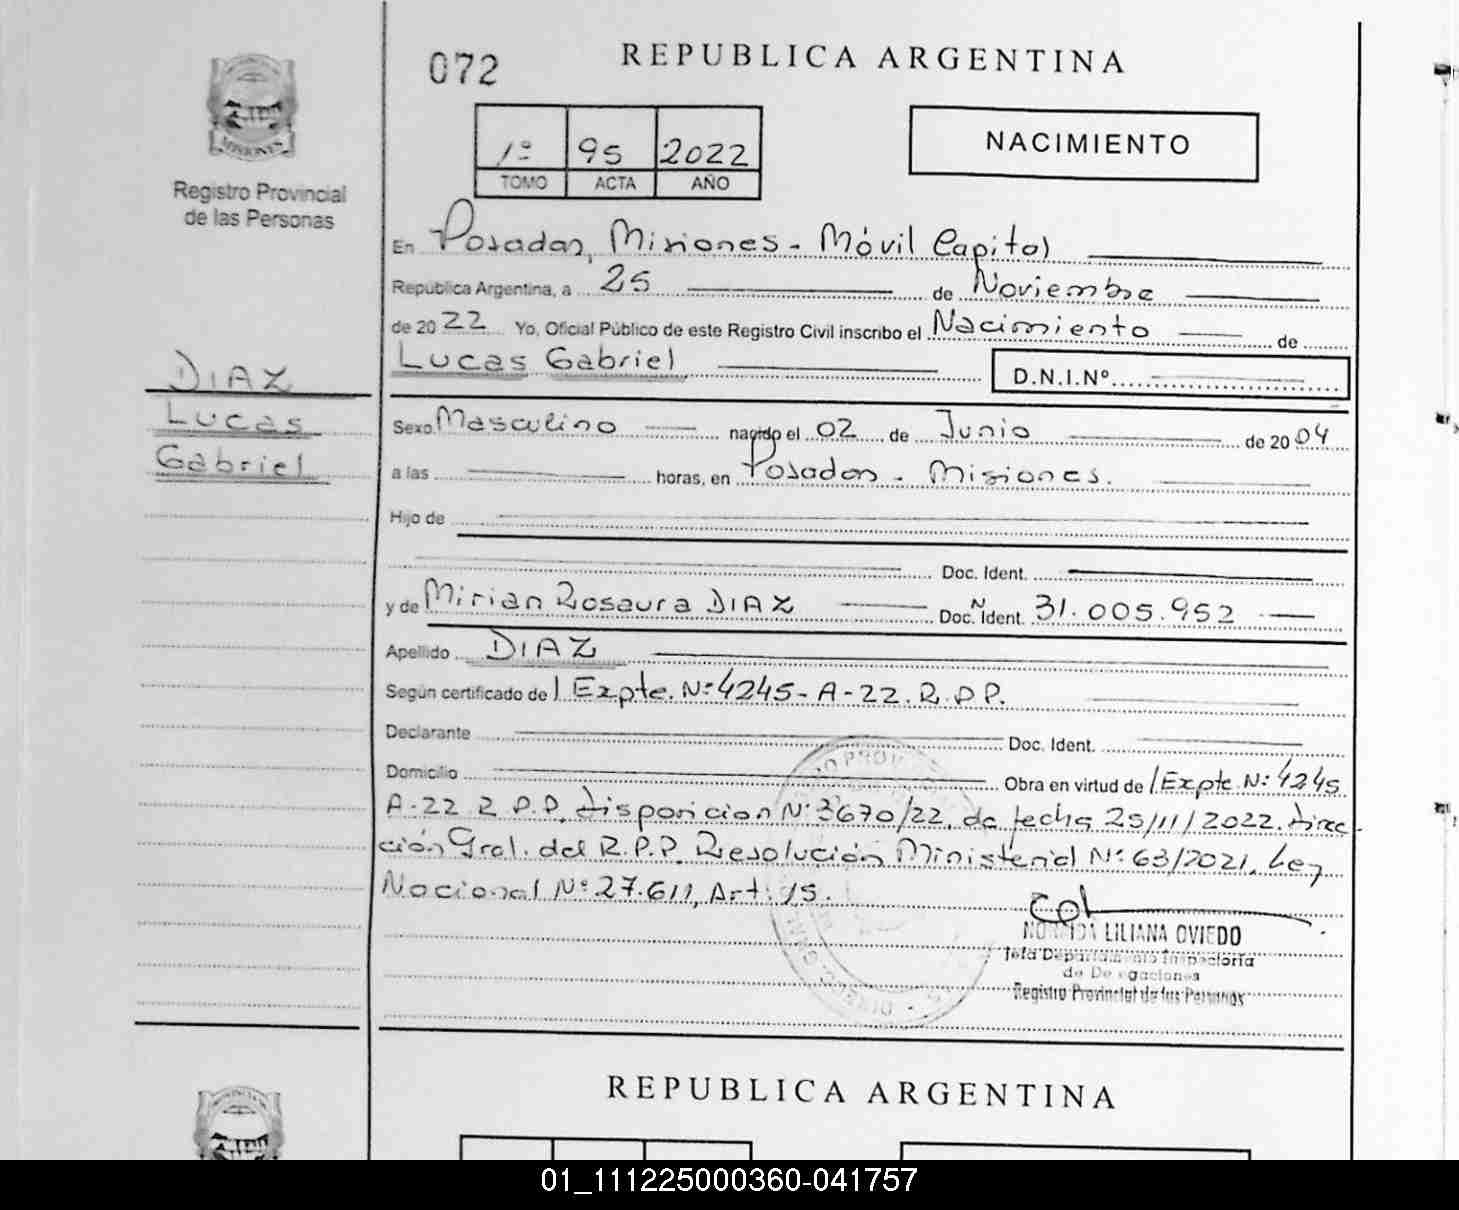 072
REPUBLICA ARGENTINA
1º 95 2022
TOMO ACTA AÑO
NACIMIENTO
MISIONES
Registro Provincial
de las Personas
En Posadas, Misiones - Móvil Capital
Republica Argentina, a 25 de Noviembre
de 2022 Yo, Oficial Público de este Registro Civil inscribo el Nacimiento de
Lucas Gabriel D.N.I.Nº
DIAZ
Lucas
Gabriel
Sexo Masculino nacido el 02 de Junio de 2004
a las horas, en Posadas - Misiones.
Hijo de
Doc. Ident.
y de Mirian Rosaura DIAZ Doc. N Ident. 31.005.952
Apellido DIAZ
Según certificado de Expte. Nº 4245-A-22. R.P.P.
Declarante Doc. Ident.
Domicilio Obra en virtud de Expte Nº 4245
A-22 R.P.P. disposicion Nº 3670/22, de fecha 25/11/2022. Direc-
ción Gral. del R.P.P. Resolución Ministerial Nº 63/2021, Ley
Nacional Nº 27.611, Art: 15.
LILIANA OVIEDO
Jefa Departamento Inspectoria
de Delegaciones
Registro Provincial de las Personas
REPUBLICA ARGENTINA
01_111225000360-041757